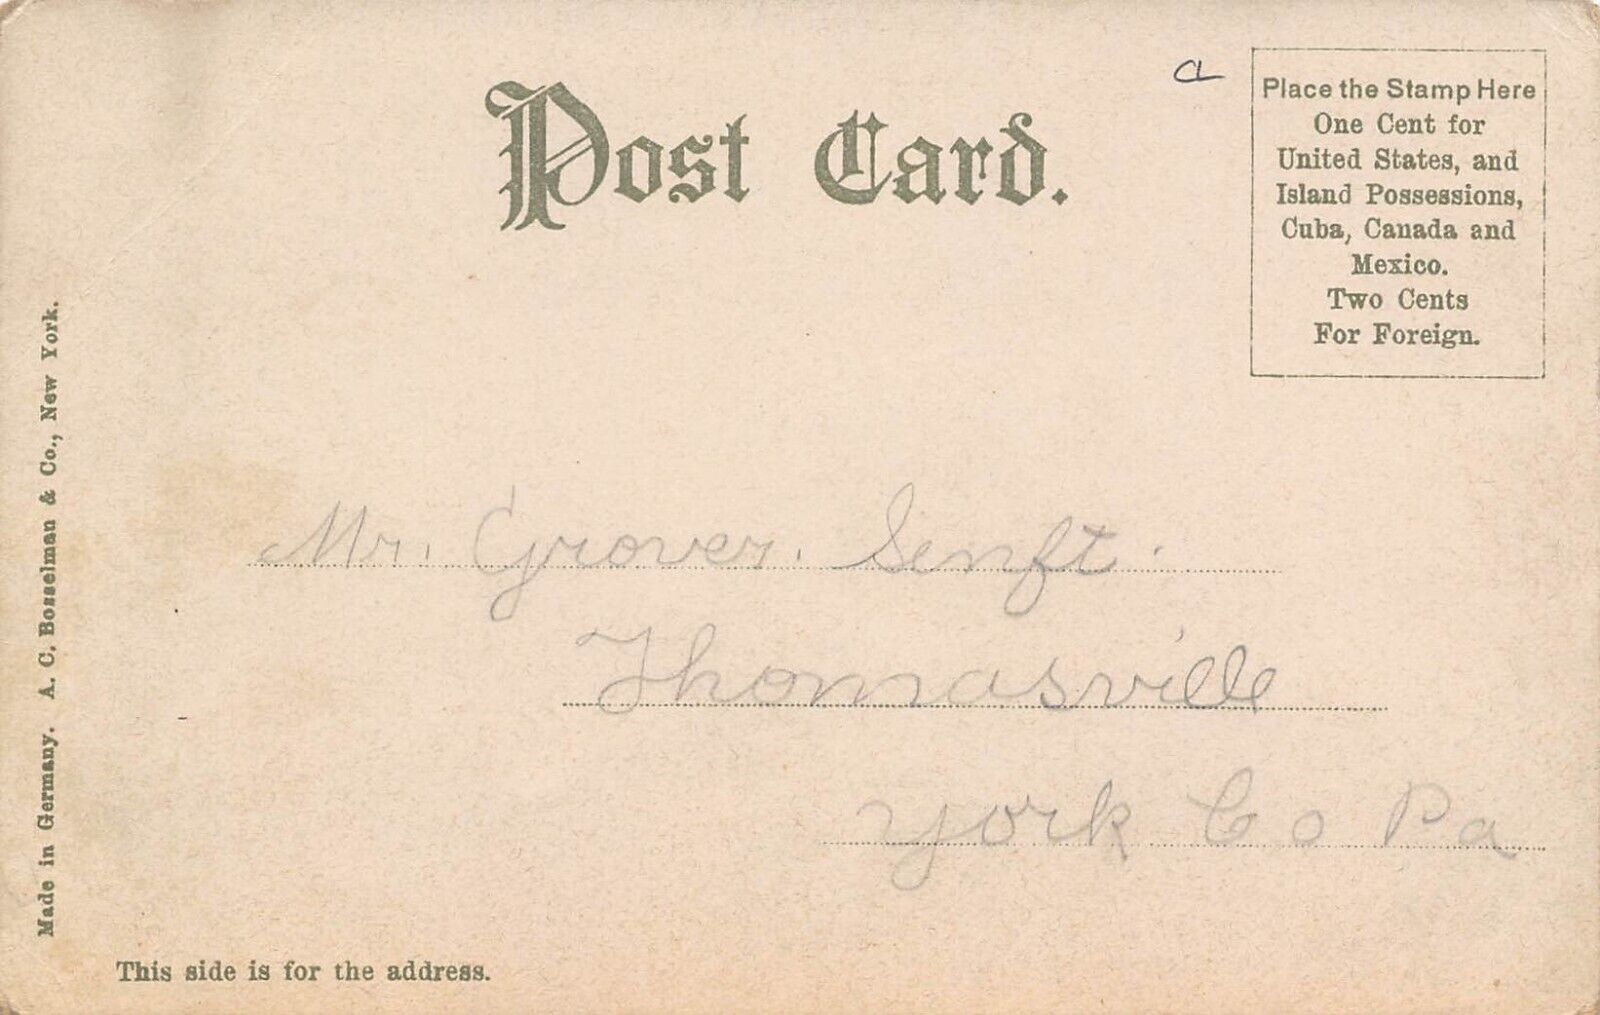 Post Card.
Place the Stamp Here
One Cent for
United States, and
Island Possessions,
Cuba, Canada and
Mexico.
Two Cents
For Foreign.
Mr. Grover. Senft.
Thomasville
York Co Pa
Made in Germany. A. C. Bosselman & Co., New York.
This side is for the address.